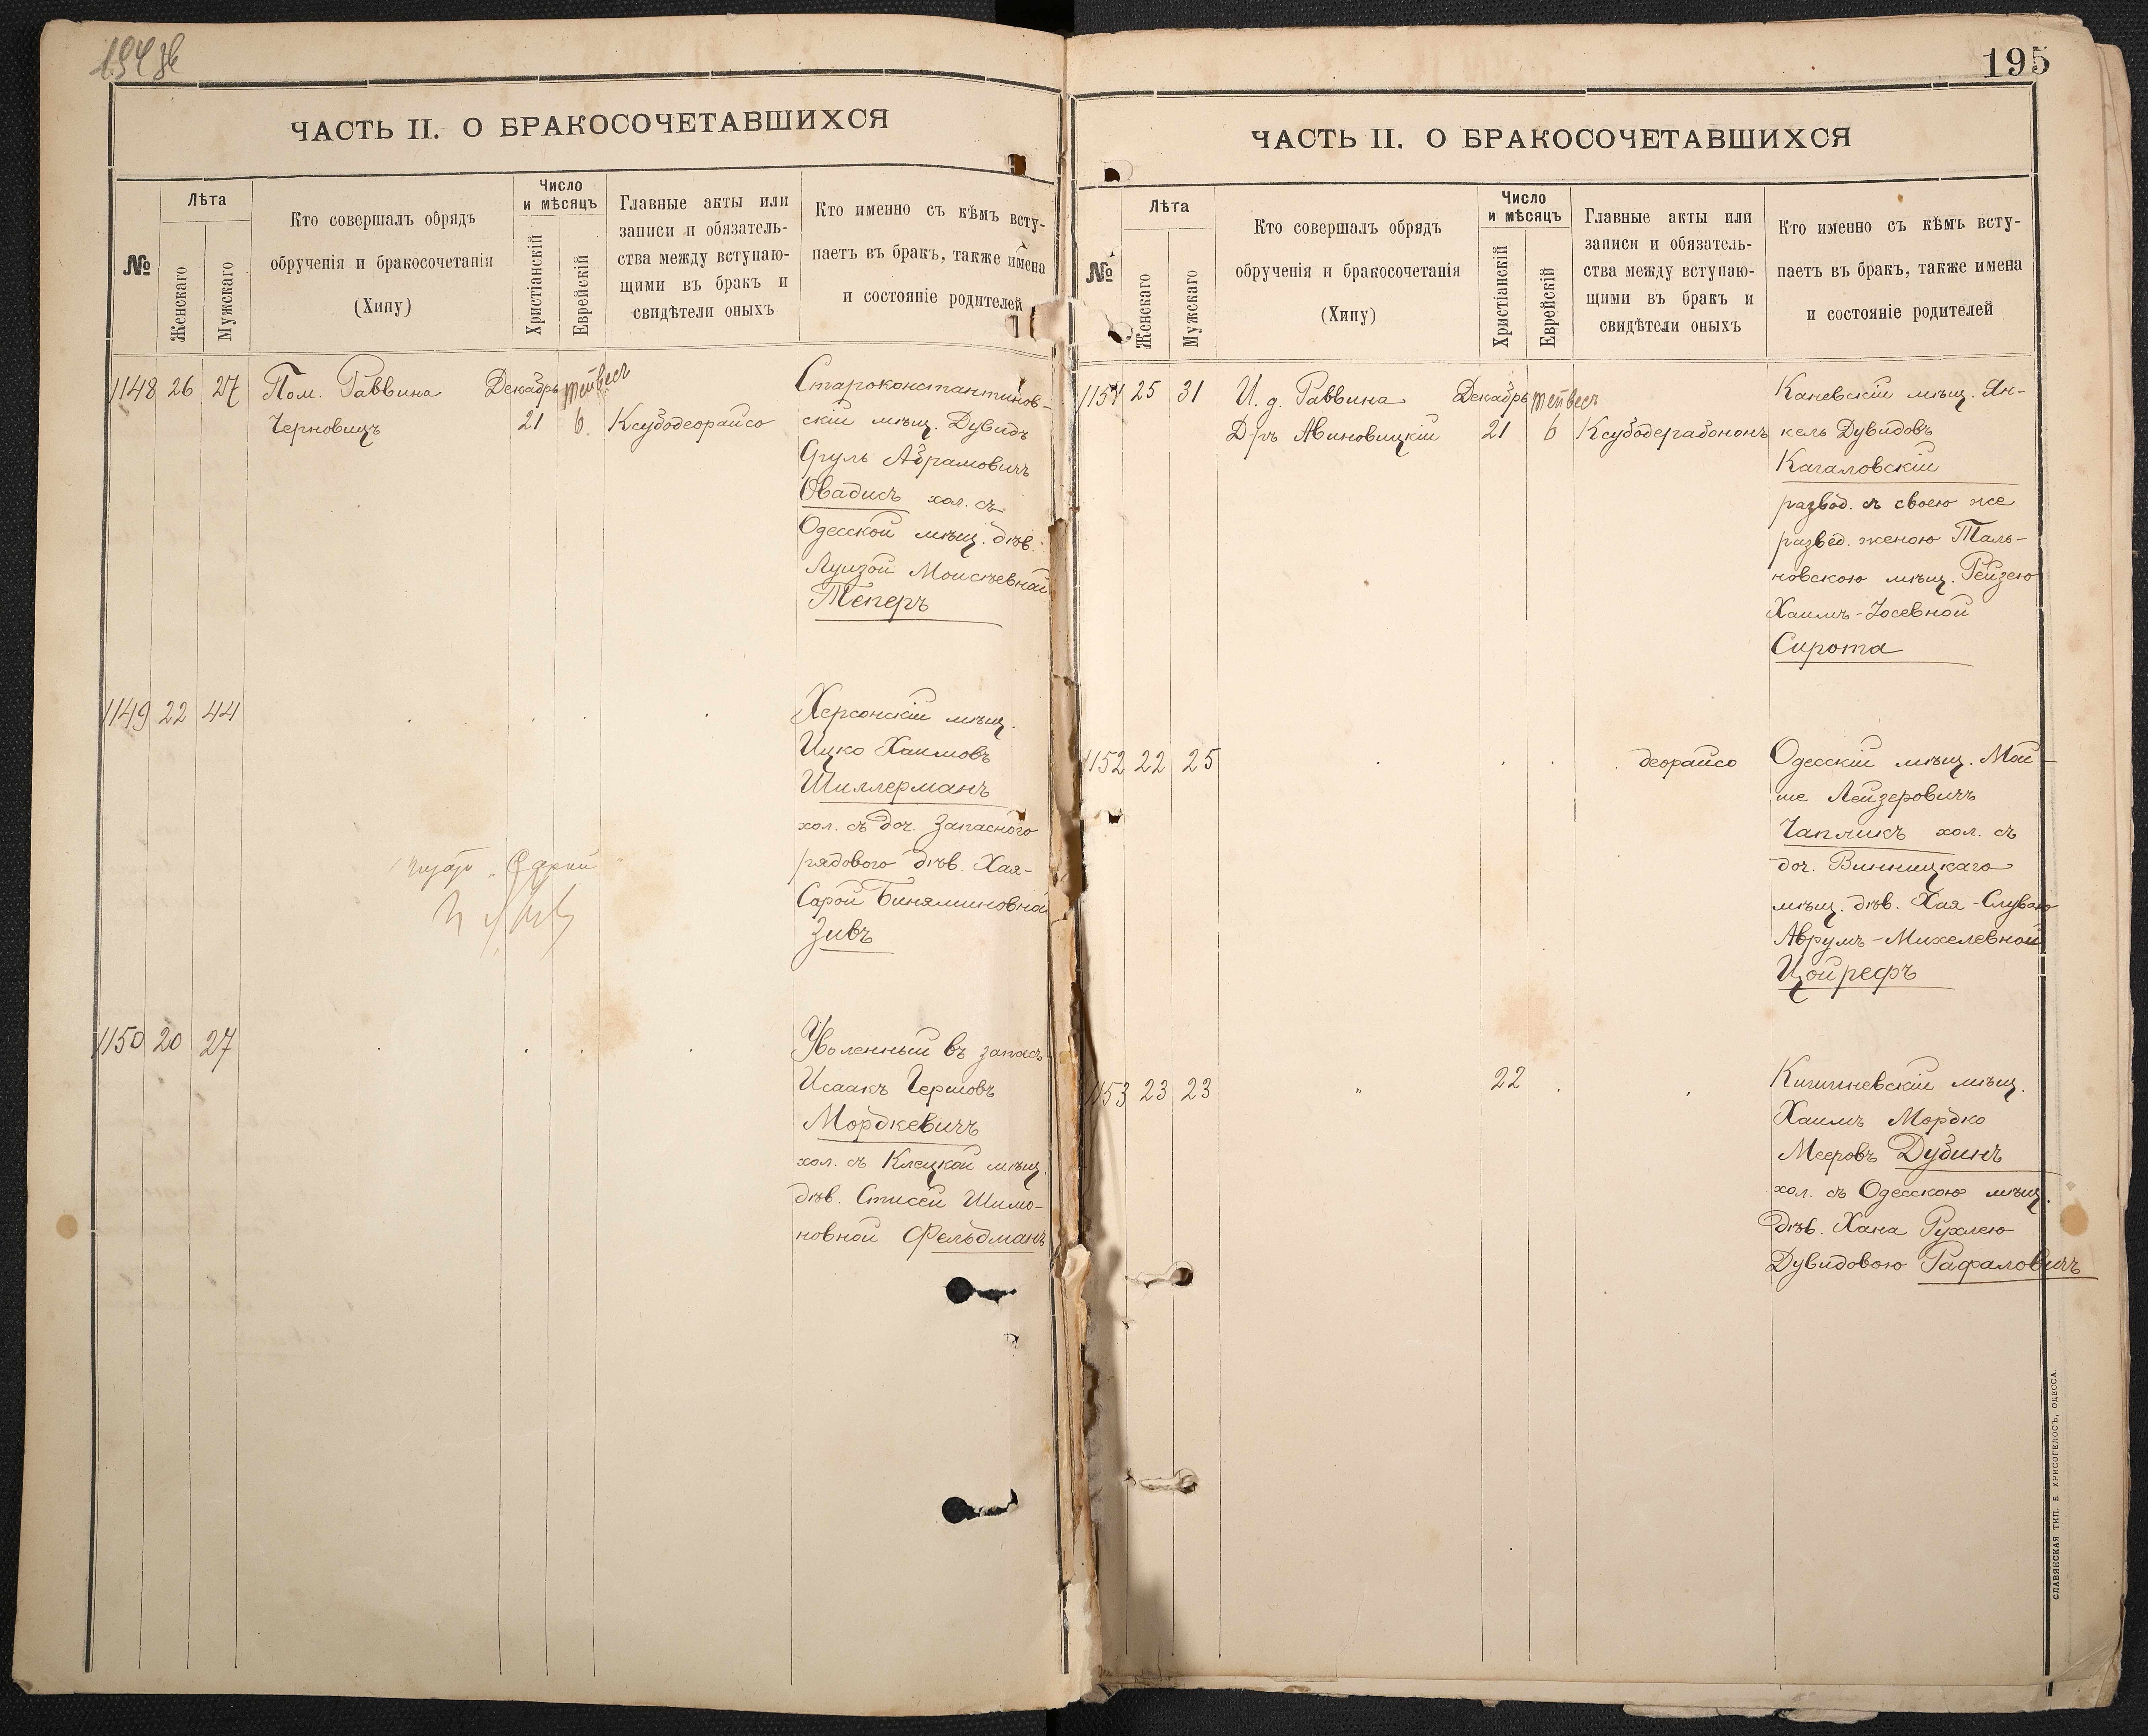 ЧАСТЬ II. О БРАКОСОЧЕТАВШИХСЯ
№
Лѣта
Женскаго
Мужскаго
Кто совершалъ обрядъ
обрученія и бракосочетанія
(Хипу)
Число
и мѣсяцъ
Христіанскій
Еврейскій
Главные акты или
записи и обязатель-
ства между вступаю-
щими въ бракъ и
свидѣтели оныхъ
Кто именно съ кѣмъ всту-
паетъ въ бракъ, также имена
и состояніе родителей
1148 26 27 Пом. Раввина Декабрь Тейвесъ
Черновицъ 21 6. Ксубодеорайсо
Староконстантинов-
скій мѣщ. Дувидъ
Сруль Абрамовичъ
Овадисъ хол. съ
Одесской мѣщ. дѣв.
Луизой Моисѣевной
Теперъ
1149 22 44
Херсонскій мѣщ.
Ицко Хаимовъ
Шиллерманъ
хол. съ доч. Запасного
рядового дѣв. Хая-
Сарой Биняминовной
Зивъ
1150 20 27
Уволенный въ запасъ
Исаакъ Гершовъ
Мордкевичъ
хол. съ Клецкой мѣщ.
дѣв. Стисей Шимо-
новной Фельдманъ
195
ЧАСТЬ II. О БРАКОСОЧЕТАВШИХСЯ
№
Лѣта
Женскаго
Мужскаго
Кто совершалъ обрядъ
обрученія и бракосочетанія
(Хипу)
Число
и мѣсяцъ
Христіанскій
Еврейскій
Главные акты или
записи и обязатель-
ства между вступаю-
щими въ бракъ и
свидѣтели оныхъ
Кто именно съ кѣмъ всту-
паетъ въ бракъ, также имена
и состояніе родителей
1151 25 31 И. д. Раввина Декабрь Тейвесъ
Д-ръ Авиновицкій 21 6 Ксубодерабононъ
Каневскій мѣщ. Ян-
кель Дувидовъ
Кагаловскій
развод. съ своею же
развед. женою Таль-
новскою мѣщ. Рейзею
Хаимъ-Іосевной
Сирота
1152 22 25 деорайсо
Одесскій мѣщ. Мой-
ше Лейзеровичъ
Чапликъ хол. съ
доч. Винницкаго
мѣщ. дѣв. Хая-Слувою
Аврумъ-Михелевной
Цойрефъ
1153 23 23 " 22
Кишиневскій мѣщ.
Хаимъ Мордко
Мееровъ Дубинъ
хол. съ Одесскою мѣщ.
дѣв. Хана Рухлею
Дувидовою Рафаловичъ
СЛАВЯНСКАЯ ТИП. Е ХРИСОГЕЛОСЪ, ОДЕССА.